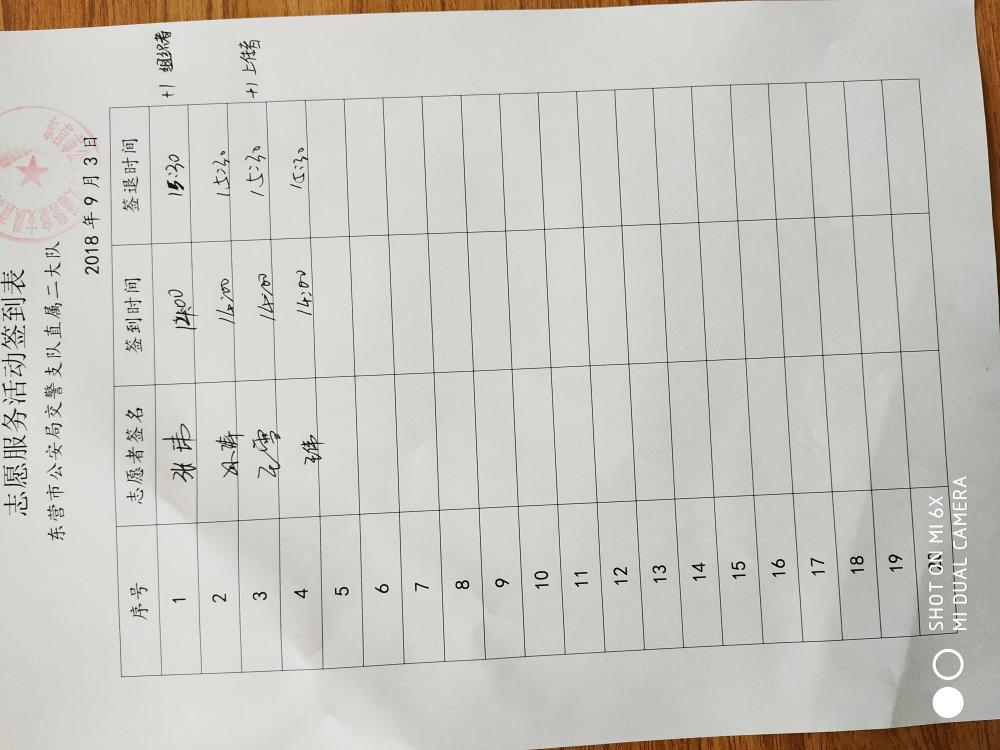 志愿服务活动签到表
东营市公安局交警支队直属二大队
2018年9月3日
序号 志愿者签名 签到时间 签退时间
1 张玮 14:00 15:30 +1 组织者
2 14:00 15:30
3 王雪 14:00 15:30 +1 上传者
4 王伟 14:00 15:30
5
6
7
8
9
10
11
12
13
14
15
16
17
18
19
20
SHOT ON MI 6X
MI DUAL CAMERA